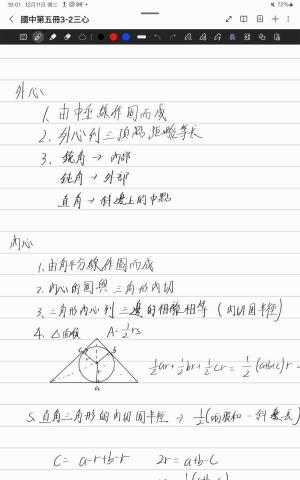 19:01 12月11日 週三
72%
國中第五冊3-2三心
外心
1. 由中垂線作圖而成
2. 外心到三頂點距離等長
3. 銳角→內部
鈍角→外部
直角→斜邊上的中點
內心
1. 由角平分線作圖而成
2. 內心的圓與三角形內切
3. 三角形內心到三邊的距離相等(內切圓半徑)
4. △面積 A=½rs
c b
r
a
½ar+½br+½cr=½(a+b+c)r=
5. 直角三角形的內切圓半徑⇒½(兩股和-斜邊長)
C=a-r+b-r 2r=a+b-c